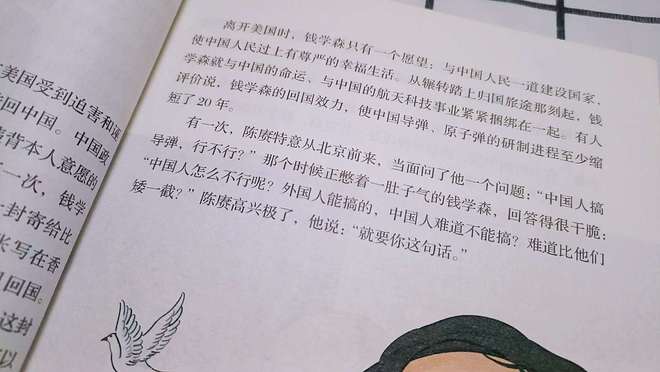 离开美国时，钱学森只有一个愿望：与中国人民一道建设国家，
使中国人民过上有尊严的幸福生活。从辗转踏上归国旅途那刻起，钱
学森就与中国的命运、与中国的航天科技事业紧紧捆绑在一起。有人
评价说，钱学森的回国效力，使中国导弹、原子弹的研制进程至少缩
短了20年。
有一次，陈赓特意从北京前来，当面问了他一个问题：“中国人搞
导弹，行不行？”那个时候正憋着一肚子气的钱学森，回答得很干脆：
“中国人怎么不行呢？外国人能搞的，中国人难道不能搞？难道比他们
矮一截？”陈赓高兴极了，他说：“就要你这句话。”
美国受到迫害和
回中国。中国政
背本人意愿的
一次，钱学
一封寄给比
长写在香
回国。
这封
以